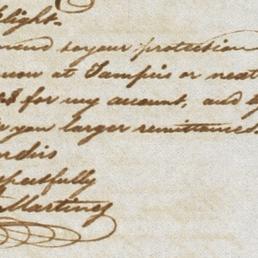 light.
mend to your protection
now at Tampico or next
for my account, and
you larger remittances.
pectfully
Martiny